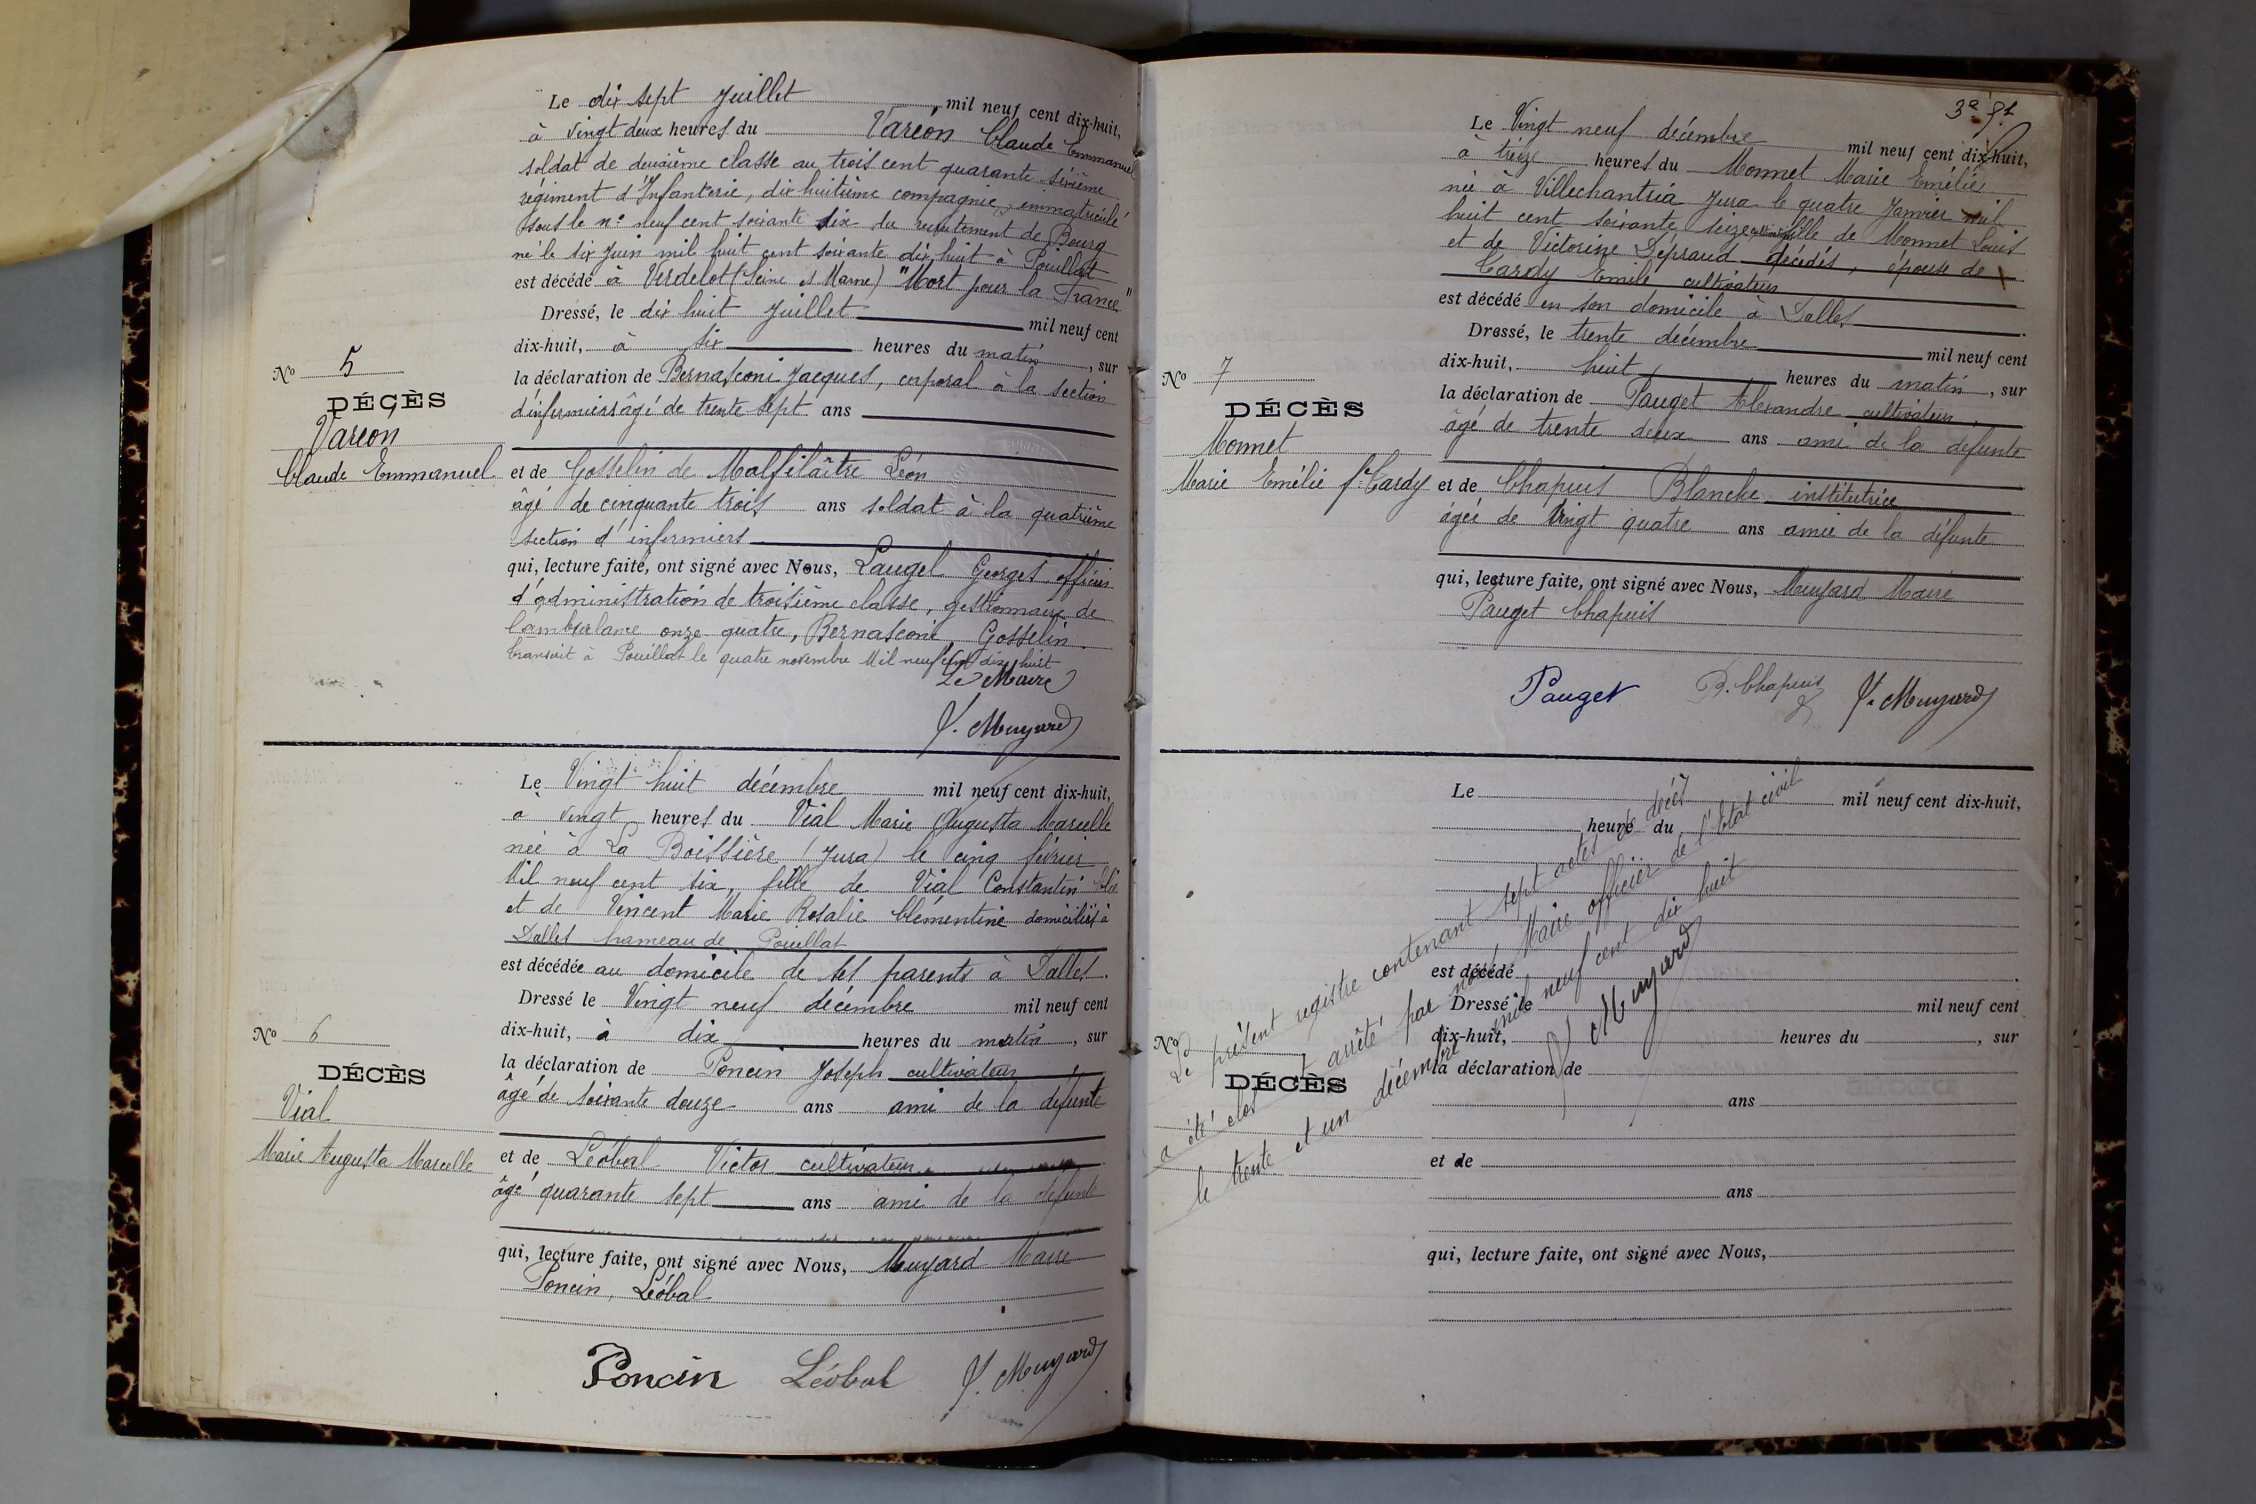 Le dix sept Juillet mil neuf cent dix-huit,
à vingt deux heures du Vareon Claude Emmanuel
soldat de deuxième classe au trois cent quarante sixième
régiment d'Infanterie, dix huitième compagnie, immatriculé
sous le n° neuf cent soixante six du recrutement de Bourg
né le six Juin mil huit cent soixante dix huit à Pouillat
est décédé à Verdelot (Seine et Marne) "Mort pour la France"
Dressé, le dix huit Juillet mil neuf cent
dix-huit, à six heures du matin, sur
la déclaration de Bernasconi Jacques, corporal à la section
d'infirmiers âgé de trente sept ans
et de Gosselin de Malfilaître Léon
âgé de cinquante trois ans soldat à la quatrième
section d'infirmiers
qui, lecture faite, ont signé avec Nous, Laugel Georges officier
d'administration de troisième classe, gestionnaire de
l'ambulance onze quatre, Bernasconi, Gosselin.
Transcrit à Pouillat le quatre novembre Mil neuf cent dix huit
Le Maire
J. Muyard
N° 5
DÉCÈS
Vareon
Claude Emmanuel
Le Vingt huit décembre mil neuf cent dix-huit,
à vingt heures du Vial Marie Augusta Marcelle
née à La Boissière (Jura) le cinq février
Mil neuf cent six, fille de Vial Constantin
et de Vincent Marie Rosalie Clémentine domiciliés à
Dalles hameau de Pouillat
est décédée au domicile de ses parents à Dalles.
Dressé le Vingt neuf décembre mil neuf cent
dix-huit, à dix heures du matin, sur
la déclaration de Poncin Joseph cultivateur
âgé de soixante douze ans ami de la défunte
et de Léobal Victor cultivateur
âgé quarante sept ans ami de la défunte
qui, lecture faite, ont signé avec Nous, Muyard Maire
Poncin, Léobal
Poncin Léobal J. Muyard
N° 6
DÉCÈS
Vial
Marie Augusta Marcelle
3e ft
Le Vingt neuf décembre mil neuf cent dix-huit,
à treize heures du Monnet Marie Emélie
née à Villechantria Jura le quatre Janvier mil
huit cent soixante seize fille de Monnet Louis
et de Victorine Dépraud décédés, épouse de
Cardy Emile cultivateur
est décédé en son domicile à Dalles
Dressé, le trente décembre mil neuf cent
dix-huit, huit heures du matin, sur
la déclaration de Pauget Alexandre cultivateur,
âgé de trente deux ans ami de la défunte
et de Chapuis Blanche institutrice
âgée de Vingt quatre ans amie de la défunte
qui, lecture faite, ont signé avec Nous, Muyard Maire
Pauget Chapuis
Pauget B. Chapuis J. Muyard
N° 7
DÉCÈS
Monnet
Marie Emélie fe Cardy
Le mil neuf cent dix-huit,
heure du
est décédé
Dressé le mil neuf cent
dix-huit, heures du , sur
la déclaration de
ans
et de
ans
qui, lecture faite, ont signé avec Nous,
N°
DÉCÈS
Le présent registre contenant sept actes de décès
a été clos et arrêté par nous Maire officier de l'Etat civil
le trente et un décembre mil neuf cent dix huit
J. Muyard